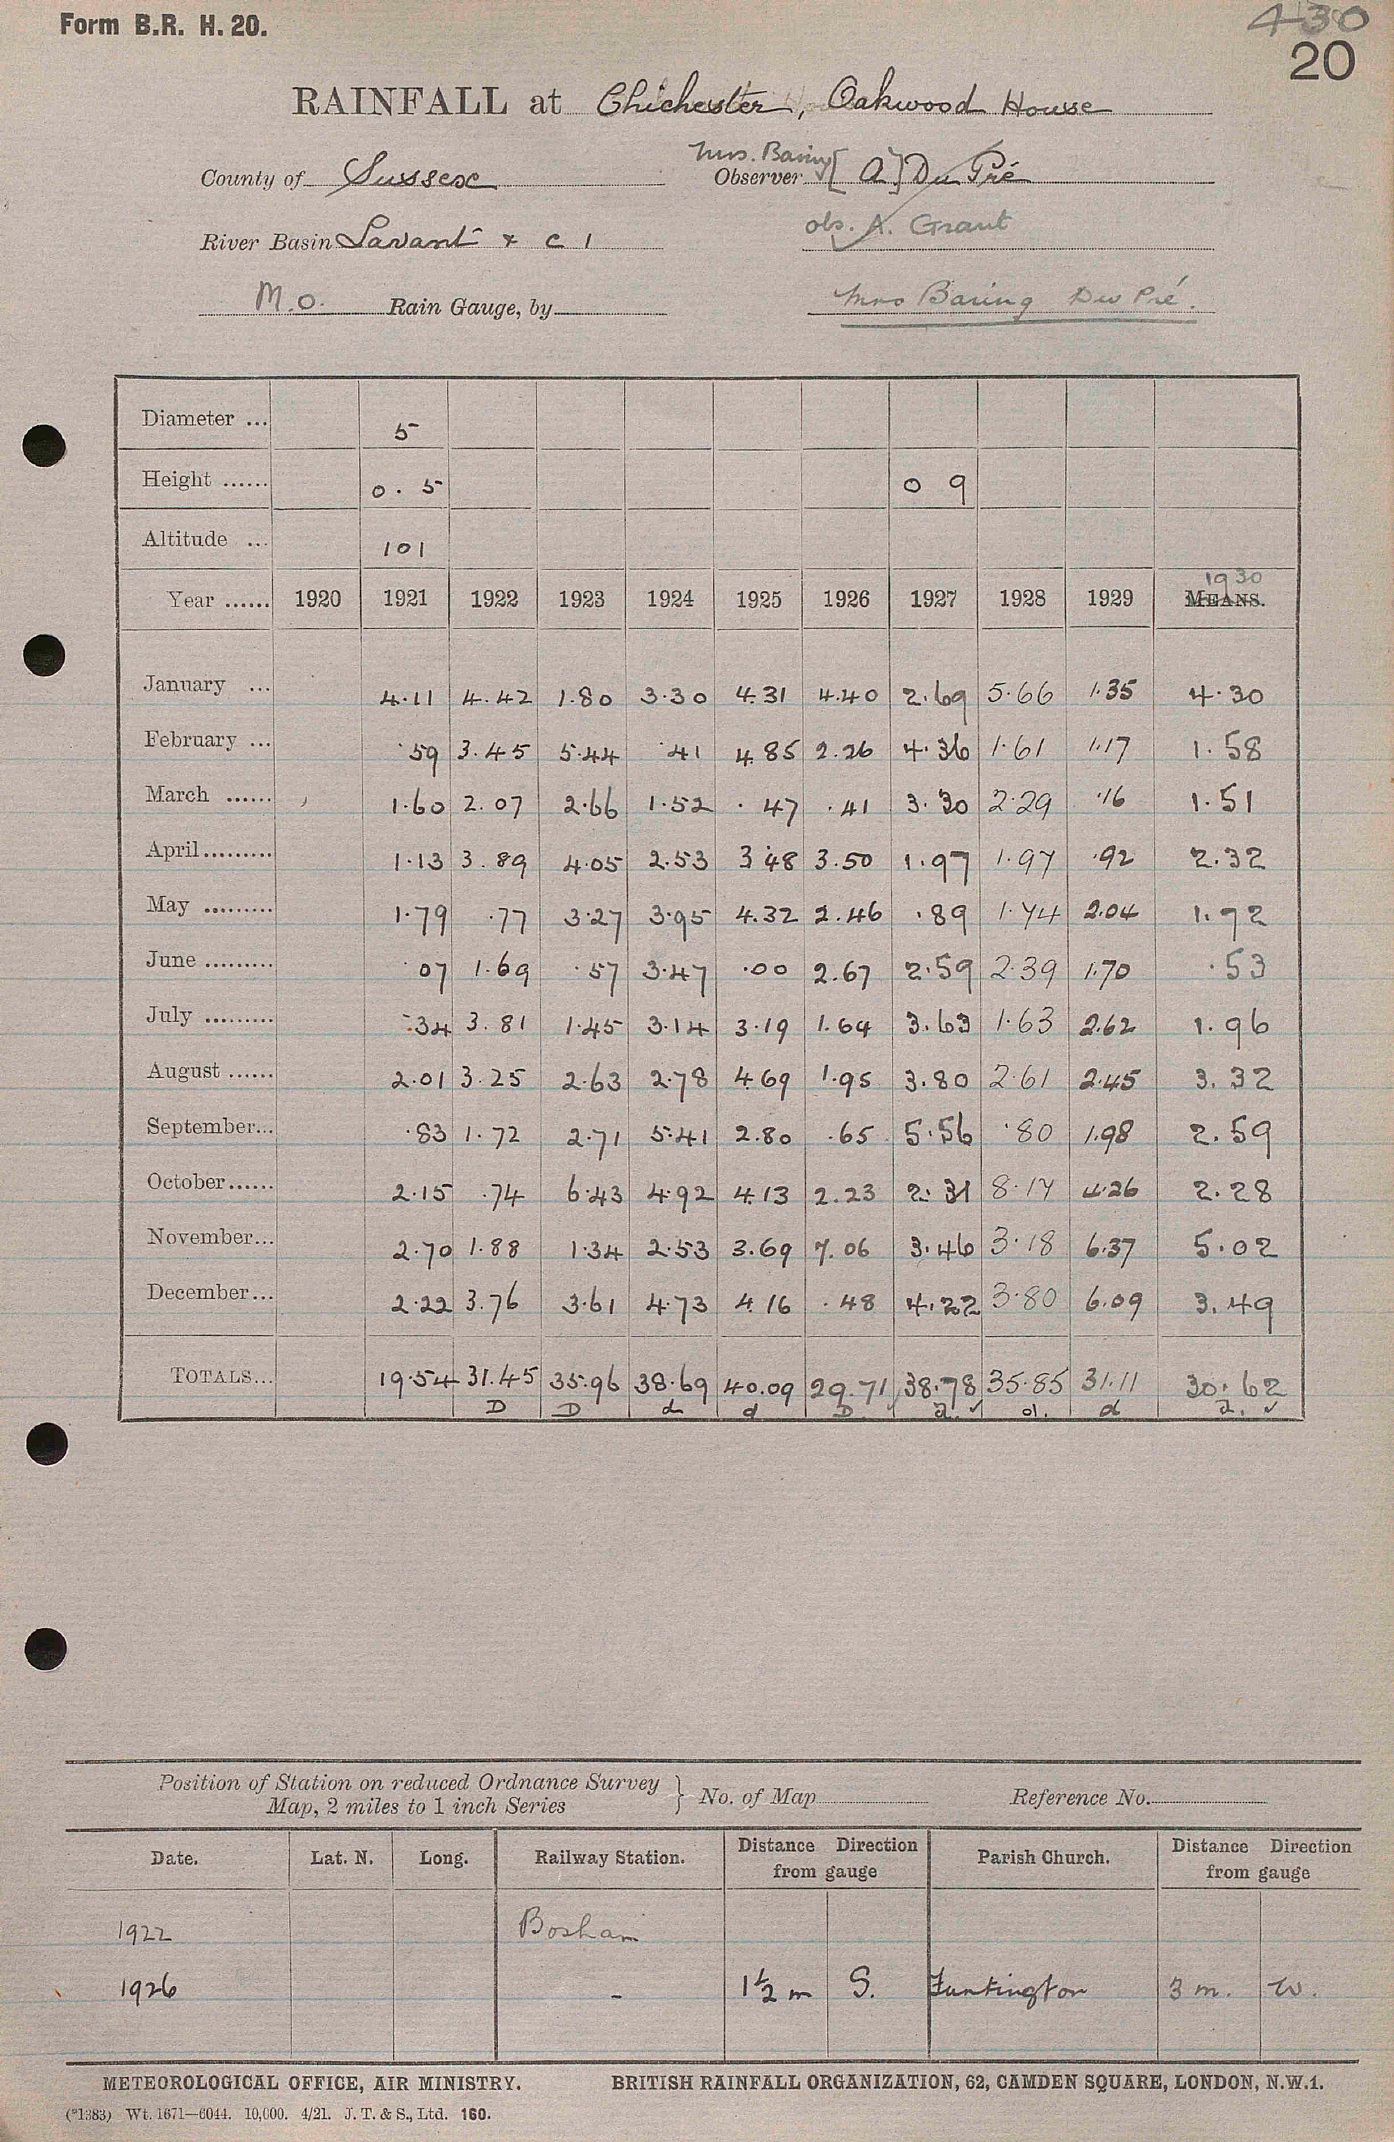 Form B.R. H. 20.
430
20
RAINFALL at Chichester, Oakwood House
County of Sussex Observer Mrs. Baring [A] Du Pré
River Basin Lavant & C 1 obs. A. Grant
M.O. Rain Gauge, by Mrs Baring Du Pré.
Diameter ... 5
Height ...... 0.5 0 9
Altitude ... 101
Year ...... 1920 1921 1922 1923 1924 1925 1926 1927 1928 1929 MEANS. 1930
January ... 4.11 4.42 1.80 3.30 4.31 4.40 2.69 5.66 1.35 4.30
February ... .59 3.45 5.44 .41 4.85 2.26 4.36 1.61 1.17 1.58
March ...... 1.60 2.07 2.66 1.52 .47 .41 3.30 2.29 .16 1.51
April ......... 1.13 3.89 4.05 2.53 3.48 3.50 1.97 1.97 .92 2.32
May ......... 1.79 .77 3.27 3.95 4.32 2.46 .89 1.74 2.04 1.72
June ......... .07 1.69 .57 3.47 .00 2.67 2.59 2.39 1.70 .53
July ......... .34 3.81 1.45 3.14 3.19 1.64 3.63 1.63 2.62 1.96
August ...... 2.01 3.25 2.63 2.78 4.69 1.95 3.80 2.61 2.45 3.32
September... .83 1.72 2.71 5.41 2.80 .65 5.56 .80 1.98 2.59
October...... 2.15 .74 6.43 4.92 4.13 2.23 2.31 8.17 4.26 2.28
November... 2.70 1.88 1.34 2.53 3.69 7.06 3.46 3.18 6.37 5.02
December... 2.22 3.76 3.61 4.73 4.16 .48 4.22 3.80 6.09 3.49
TOTALS... 19.54 31.45 35.96 38.69 40.09 29.71 38.78 35.85 31.11 30.62
D D d d D a. ✓ d. d a. ✓
Position of Station on reduced Ordnance Survey
Map, 2 miles to 1 inch Series } No. of Map Reference No.
Date. Lat. N. Long. Railway Station. Distance Direction from gauge Parish Church. Distance Direction from gauge
1922 Bosham
1926 - 1½ m S. Funtington 3 m. W.
METEOROLOGICAL OFFICE, AIR MINISTRY. BRITISH RAINFALL ORGANIZATION, 62, CAMDEN SQUARE, LONDON, N.W.1.
(*1383) Wt. 1671—6044. 10,000. 4/21. J. T. & S., Ltd. 160.